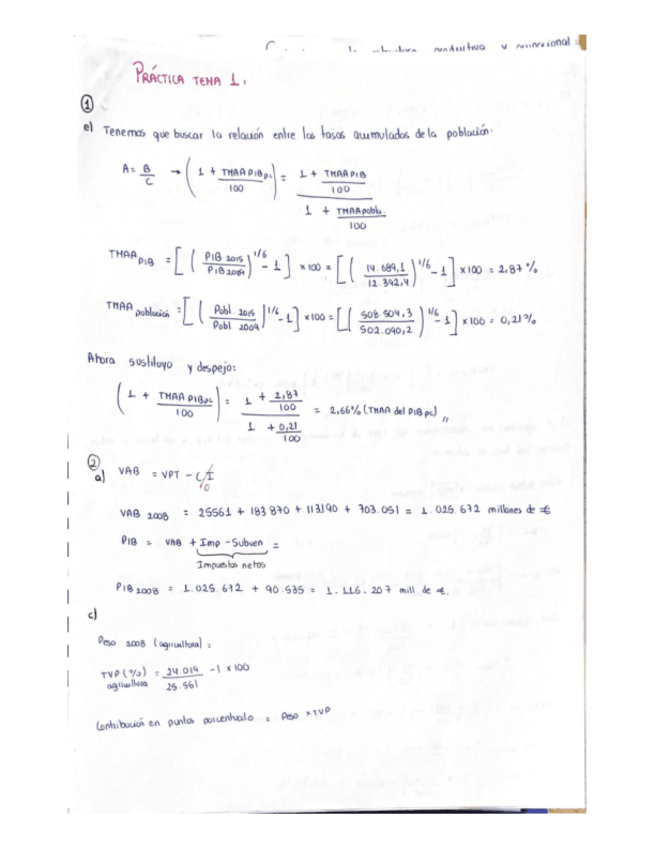 PRÁCTICA TEMA 1.
①
e) Tenemos que buscar la relación entre las tasas acumuladas de la población.
A = B/C → (1 + TMAA PIBpc/100) = (1 + TMAA PIB/100) / (1 + TMAA pobla./100)
TMAA PIB = [(PIB 2015/PIB 2009)^1/6 - 1] x 100 = [(14.689,1/12.392,4)^1/6 - 1] x 100 = 2,87 %
TMAA población = [(Pobl. 2015/Pobl. 2009)^1/6 - 1] x 100 = [(508.504,3/502.090,2)^1/6 - 1] x 100 = 0,21 %
Ahora sustituyo y despejo:
(1 + TMAA PIBpc/100) = (1 + 2,87/100) / (1 + 0,21/100) = 2,66% (TMAA del PIB pc) //
②
a) VAB = VPT - C/I
0
VAB 2008 = 25561 + 183870 + 113190 + 703.051 = 1.025.672 millones de €
PIB = VAB + Imp - Subven =
Impuestos netos
PIB 2008 = 1.025.672 + 90.535 = 1.116.207 mill de €.
c)
Peso 2008 (agricultura) =
TVP (%) agricultura = 24.019/25.561 - 1 x 100
Contribución en puntos porcentuale = Peso x TVP